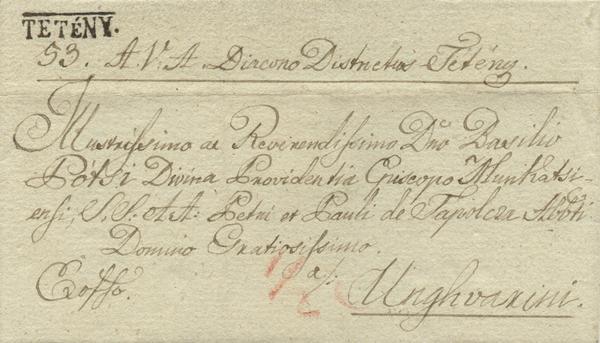 TETÉNY.
53. A. V. A. Diacono Districtus Tétény.
Illustrissimo ac Reverendissimo Dno Basilio
Pótsi Divina Providentia Episcopo Munkatsi-
ensi, S.S. A A: Petri et Pauli de Tapolcza Abbati
Domino Gratiosissimo.
a/:
Exoffo.
Unghvarini.